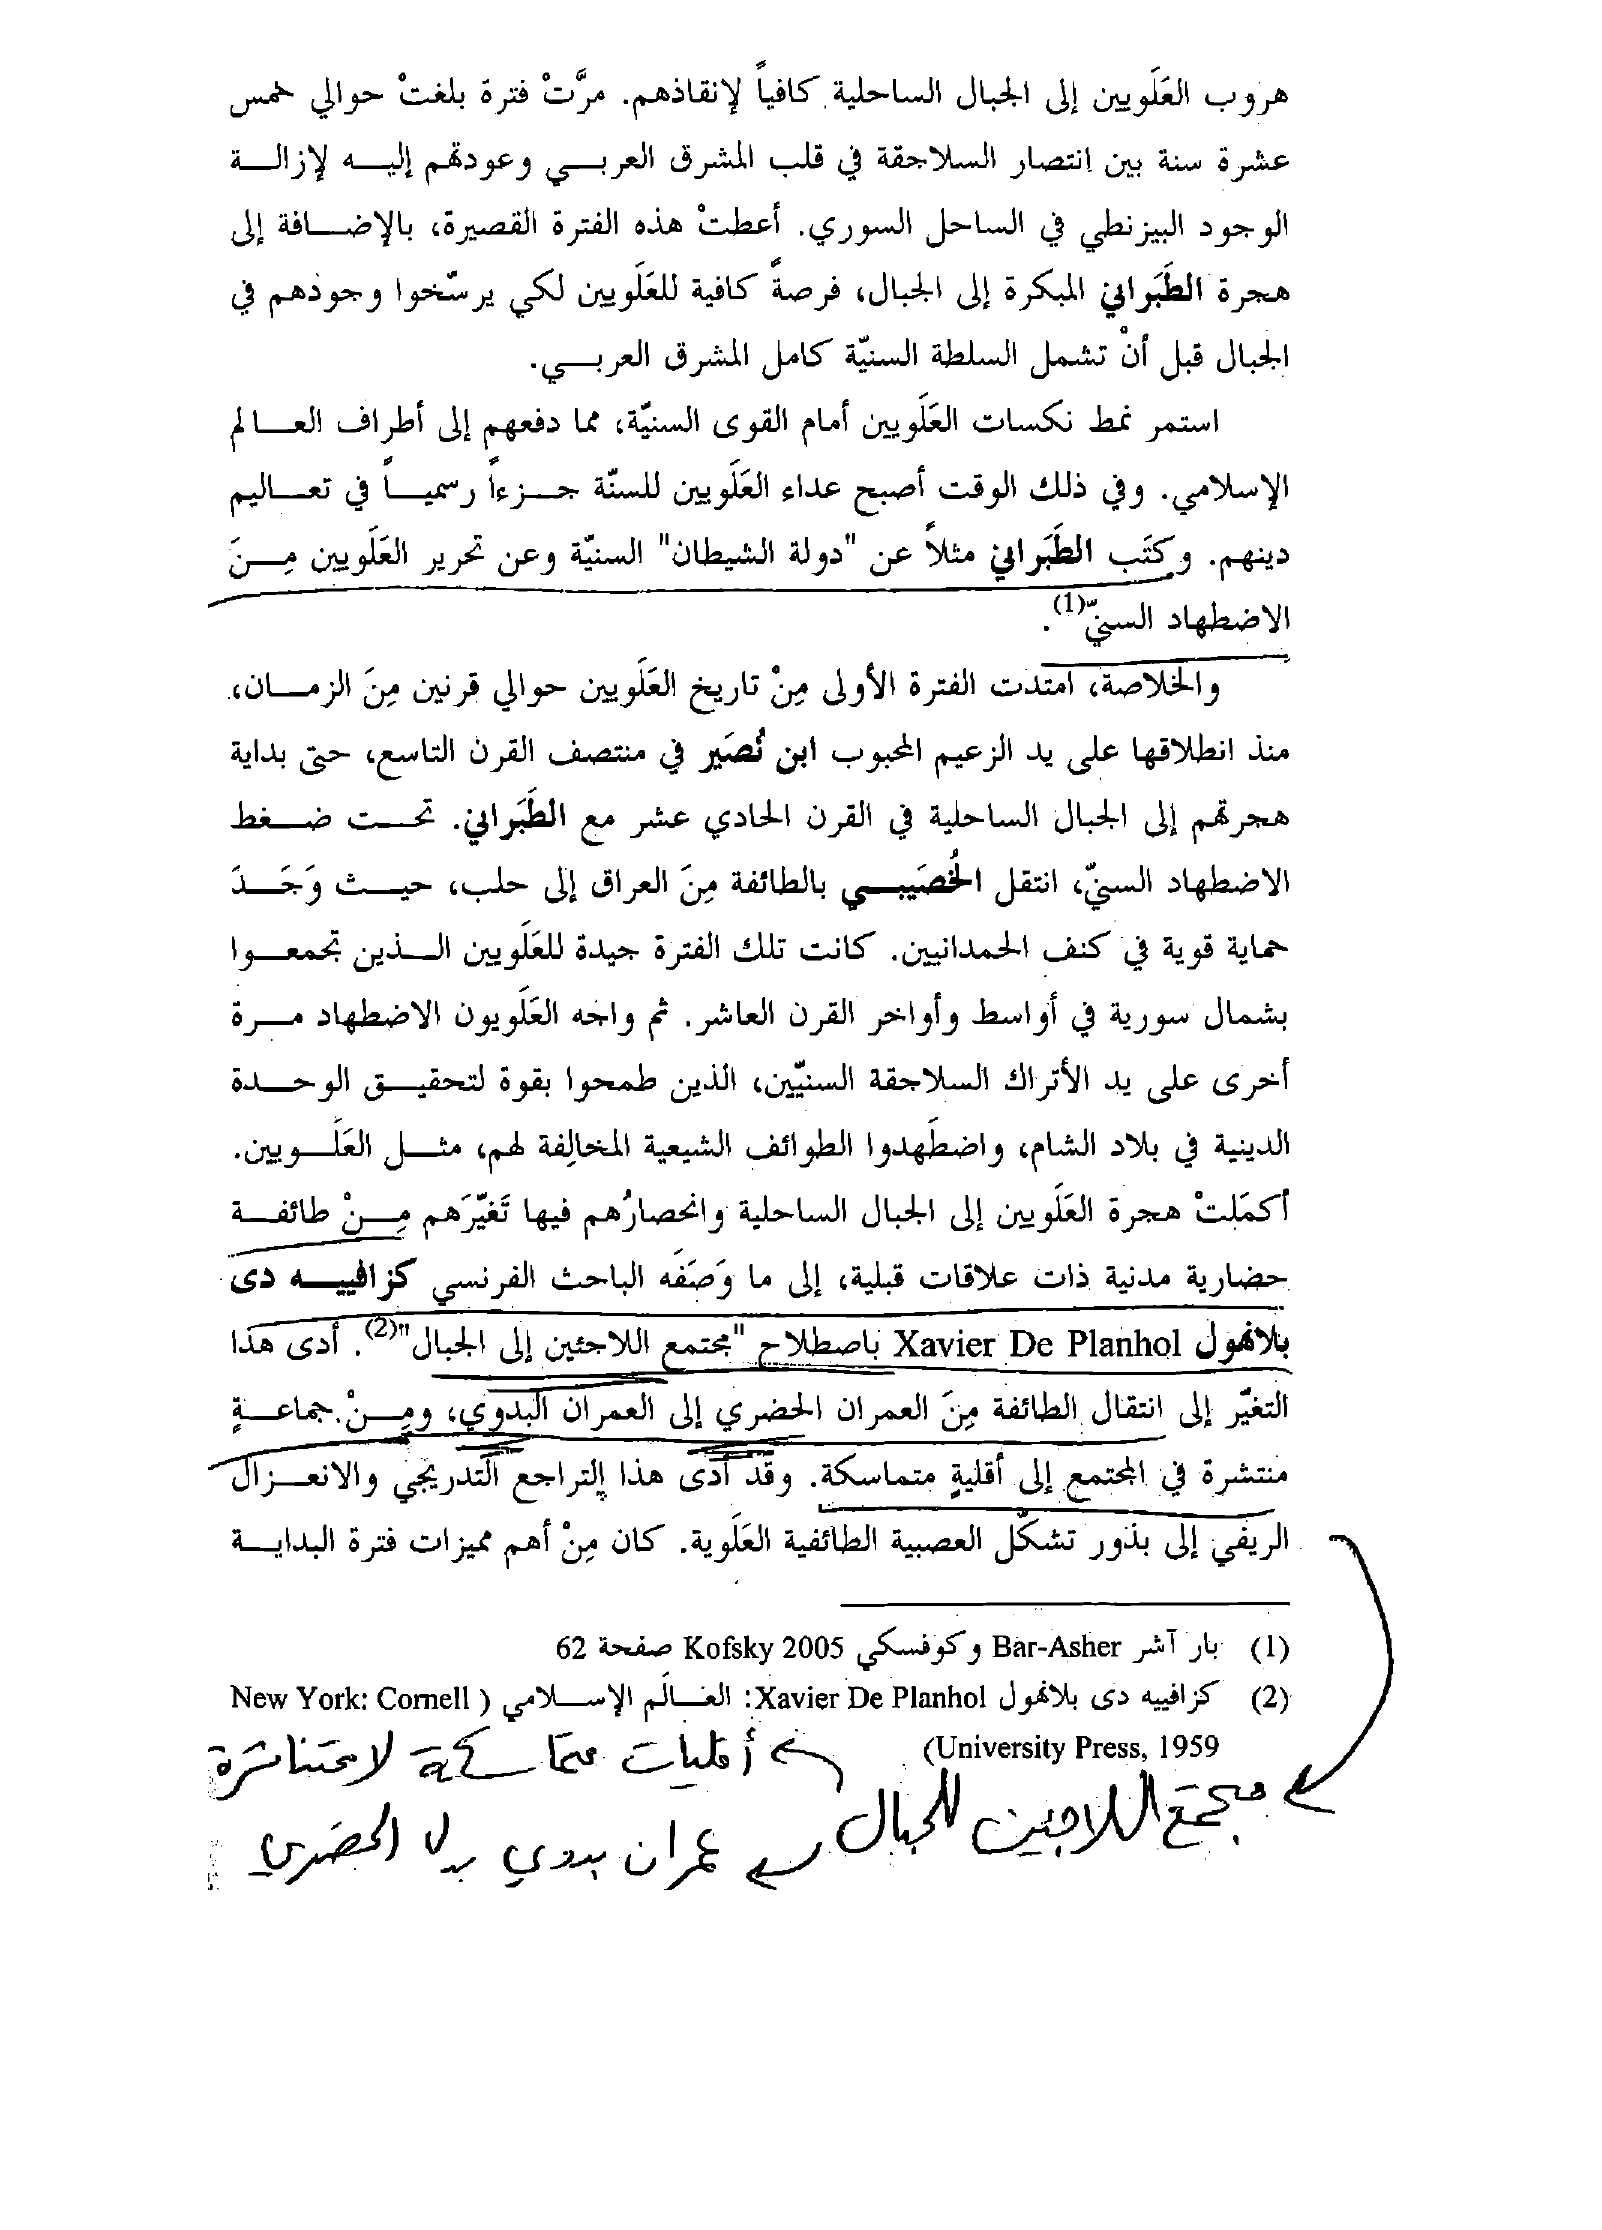 هروب العَلَويين إلى الجبال الساحلية كافياً لإنقاذهم. مرَّتْ فترة بلغتْ حوالي خمس
عشرة سنة بين انتصار السلاجقة في قلب المشرق العربي وعودتهم إليه لإزالة
الوجود البيزنطي في الساحل السوري. أعطتْ هذه الفترة القصيرة، بالإضافة إلى
هجرة الطَبَراني المبكرة إلى الجبال، فرصةً كافية للعَلَويين لكي يرسّخوا وجودهم في
الجبال قبل أنْ تشمل السلطة السنيّة كامل المشرق العربي.
استمر نمط نكسات العَلَويين أمام القوى السنيّة، مما دفعهم إلى أطراف العالم
الإسلامي. وفي ذلك الوقت أصبح عداء العَلَويين للسنّة جزءاً رسمياً في تعاليم
دينهم. وكتَب الطَبَراني مثلاً عن "دولة الشيطان" السنيّة وعن تحرير العَلَويين مِنَ
الاضطهاد السنيّ(1).
والخلاصة، امتدت الفترة الأولى مِنْ تاريخ العَلَويين حوالي قرنين مِنَ الزمان،
منذ انطلاقها على يد الزعيم المحبوب ابن نُصَير في منتصف القرن التاسع، حتى بداية
هجرتهم إلى الجبال الساحلية في القرن الحادي عشر مع الطَبَراني. تحت ضغط
الاضطهاد السنيّ، انتقل الخُصَيبي بالطائفة مِنَ العراق إلى حلب، حيث وَجَدَ
حماية قوية في كنف الحمدانيين. كانت تلك الفترة جيدة للعَلَويين الذين تجمعوا
بشمال سورية في أواسط وأواخر القرن العاشر. ثم واجه العَلَويون الاضطهاد مرة
أخرى على يد الأتراك السلاجقة السنيّين، الذين طمحوا بقوة لتحقيق الوحدة
الدينية في بلاد الشام، واضطَهدوا الطوائف الشيعية المخالِفة لهم، مثل العَلَويين.
أكمَلتْ هجرة العَلَويين إلى الجبال الساحلية وانحصارُهم فيها تَغيّرَهم مِنْ طائفة
حضارية مدنية ذات علاقات قبلية، إلى ما وَصَفَه الباحث الفرنسي كزافييه دى
بلانهول Xavier De Planhol باصطلاح "مجتمع اللاجئين إلى الجبال"(2). أدى هذا
التغيّر إلى انتقال الطائفة مِنَ العمران الحضري إلى العمران البدوي، ومِنْ جماعةٍ
منتشرة في المجتمع إلى أقليةٍ متماسكة. وقد أدى هذا التراجع التدريجي والانعزال
الريفي إلى بذور تشكّل العصبية الطائفية العَلَوية. كان مِنْ أهم مميزات فترة البداية
(1) بار آشر Bar-Asher وكوفسكي Kofsky 2005 صفحة 62
(2) كزافييه دى بلانهول Xavier De Planhol: العَالَم الإسلامي (New York: Cornell
University Press, 1959)
أقليات متماسكة لا متناثرة
مجتمع اللاجئين للجبال
عمران بدوي بدلا الحضري